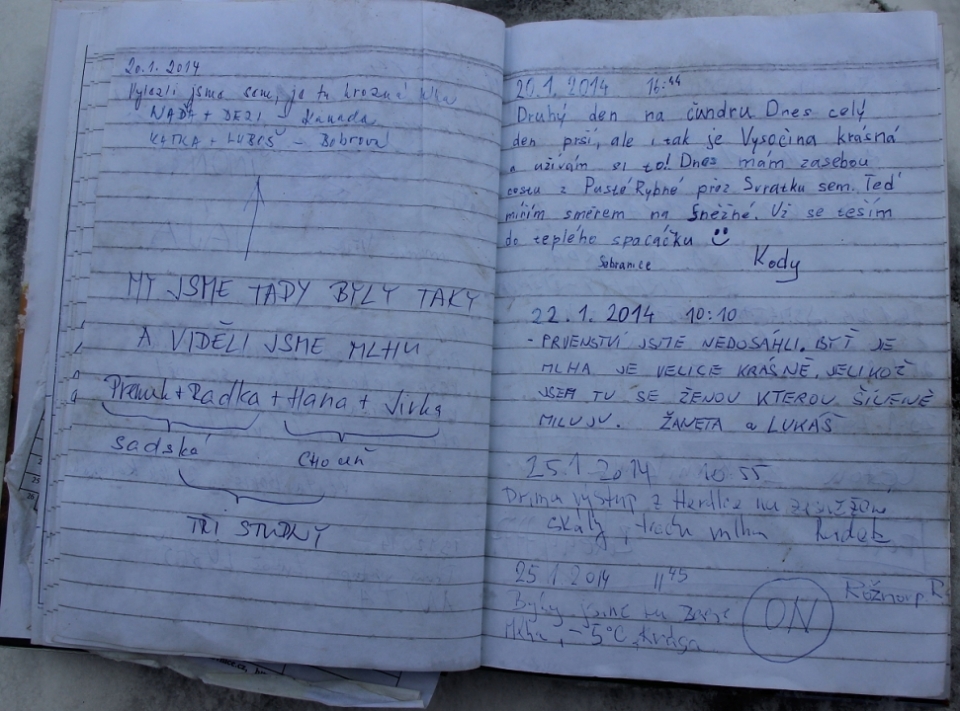 20.1.2014
Vylezli jsme sem, je tu hrozná mlha
NAĎA + DEZI - Kanada
KATKA + LUBOŠ - Bobrová
MY JSME TADY BYLY TAKY
A VIDĚLI JSME MLHU
Radka + Hana + Jirka
Sadská
TŘI STUDNY
20.1.2014 16:44
Druhý den na čundru Dnes celý
den prší, ale i tak je Vysočina krásná
a užívám si to! Dnes mám zasebou
cestu z Pusté Rybné přez Svratku sem. Teď
mířím směrem na Sněžné. Už se teším
do teplého spacáčku
Kody
22.1.2014 10:10
- PRVENSTVÍ JSME NEDOSÁHLI. BYŤ JE
MLHA JE VELICE KRÁSNĚ, JELIKOŽ
JSEM TU SE ŽENOU KTEROU ŠÍLENĚ
MILUJU. ŽANETA a LUKÁŠ
25.1.2014 10 55
výstup z na
skály, trochu mlha
25.1.2014 11 45
jsme na
Mlha, -5°C,
ON